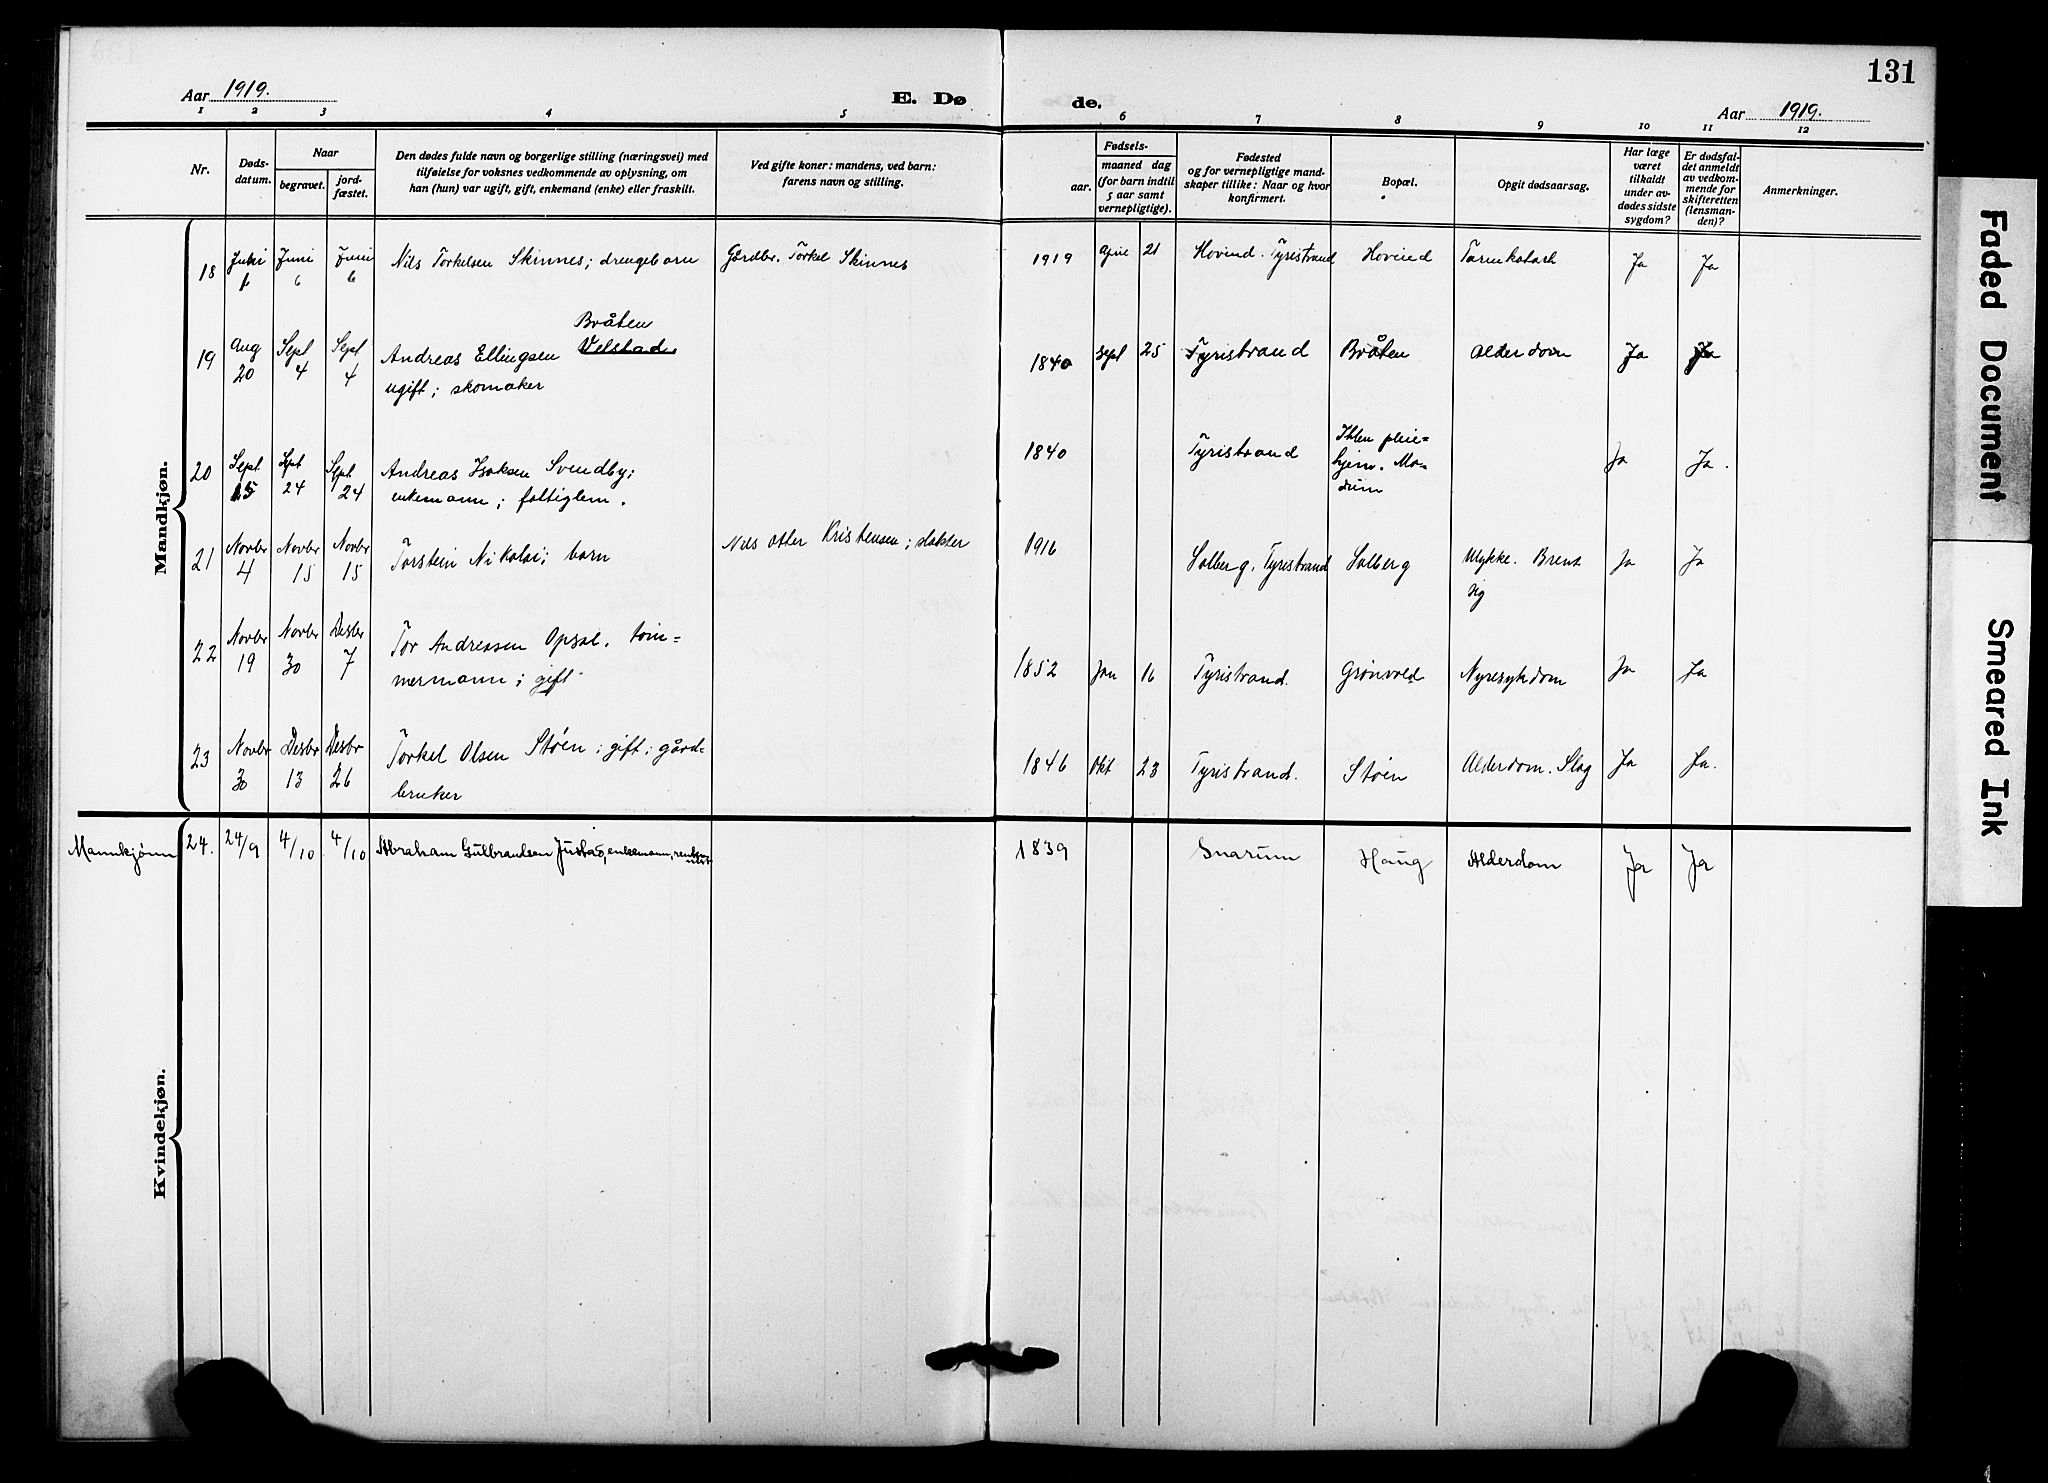 131
Aar 1919.
E. Dø
de.
Aar 1919.
1 2 3 4 5 6 7 8 9 10 11 12
Nr.
Døds-
datum.
Naar
begravet.
jord-
fæstet.
Den dødes fulde navn og borgerlige stilling (næringsvei) med
tilføielse for voksnes vedkommende av oplysning, om
han (hun) var ugift, gift, enkemand (enke) eller fraskilt.
Ved gifte koner: mandens, ved barn:
farens navn og stilling.
Fødsels-
aar.
maaned dag
(for barn indtil
5 aar samt
vernepligtige).
Fødested
og for vernepligtige mand-
skaper tillike: Naar og hvor
konfirmert.
Bopæl.
Opgit dødsaarsag.
Har læge
været
tilkaldt
under av-
dødes sidste
sygdom?
Er dødsfal-
det anmeldt
av vedkom-
mende for
skifteretten
(lensman-
den)?
Anmerkninger.
Mandkjøn.
18 Juni Juni Juni Nils Torkelsen Skinnes; drengebarn Gårdbr. Torkel Skinnes 1919 21 Hovind. Tyristrand Hovind Tarmkatarh Ja Ja
6 6
Bråten
19 Aug Sept Sept Andreas Ellingsen Velstad 1840 Sept 25 Tyristrand Bråten Alderdom Ja Ja
20 4 4 ugift; skomaker
20 Sept Sept Sept Andreas Isaksen Svendby; 1840 Tyristrand pleie= Ja Ja.
15 24 24 enkemann; fattiglem. hjem. Mo=
dum
21 Novbr Novbr Novbr Torstein Nikolai; barn Nils Otter Kristensen; slakter 1916 Solberg, Tyristrand Solberg Ulykke. Brent Ja Ja
4 15 15 sig
22 Novbr Novbr Desbr Tor Andreasen Opsal. tøm= 1852 Jan 16 Tyristrand. Grønvold Nyresykdom Ja Ja
19 30 7 mermann; gift.
23 Novbr Desbr Desbr Torkel Olsen Støen; gift; gård= 1846 Okt 23 Tyristrand. Støen Alderdom. Slag Ja Ja.
30 13 26 bruker
Mannkjønn 24. 24/9 4/10 4/10 Abraham Gulbrandsen Justad, enkemann, 1839 Snarum Haug Alderdom Ja Ja
Kvindekjøn.
Faded Document
Smeared Ink